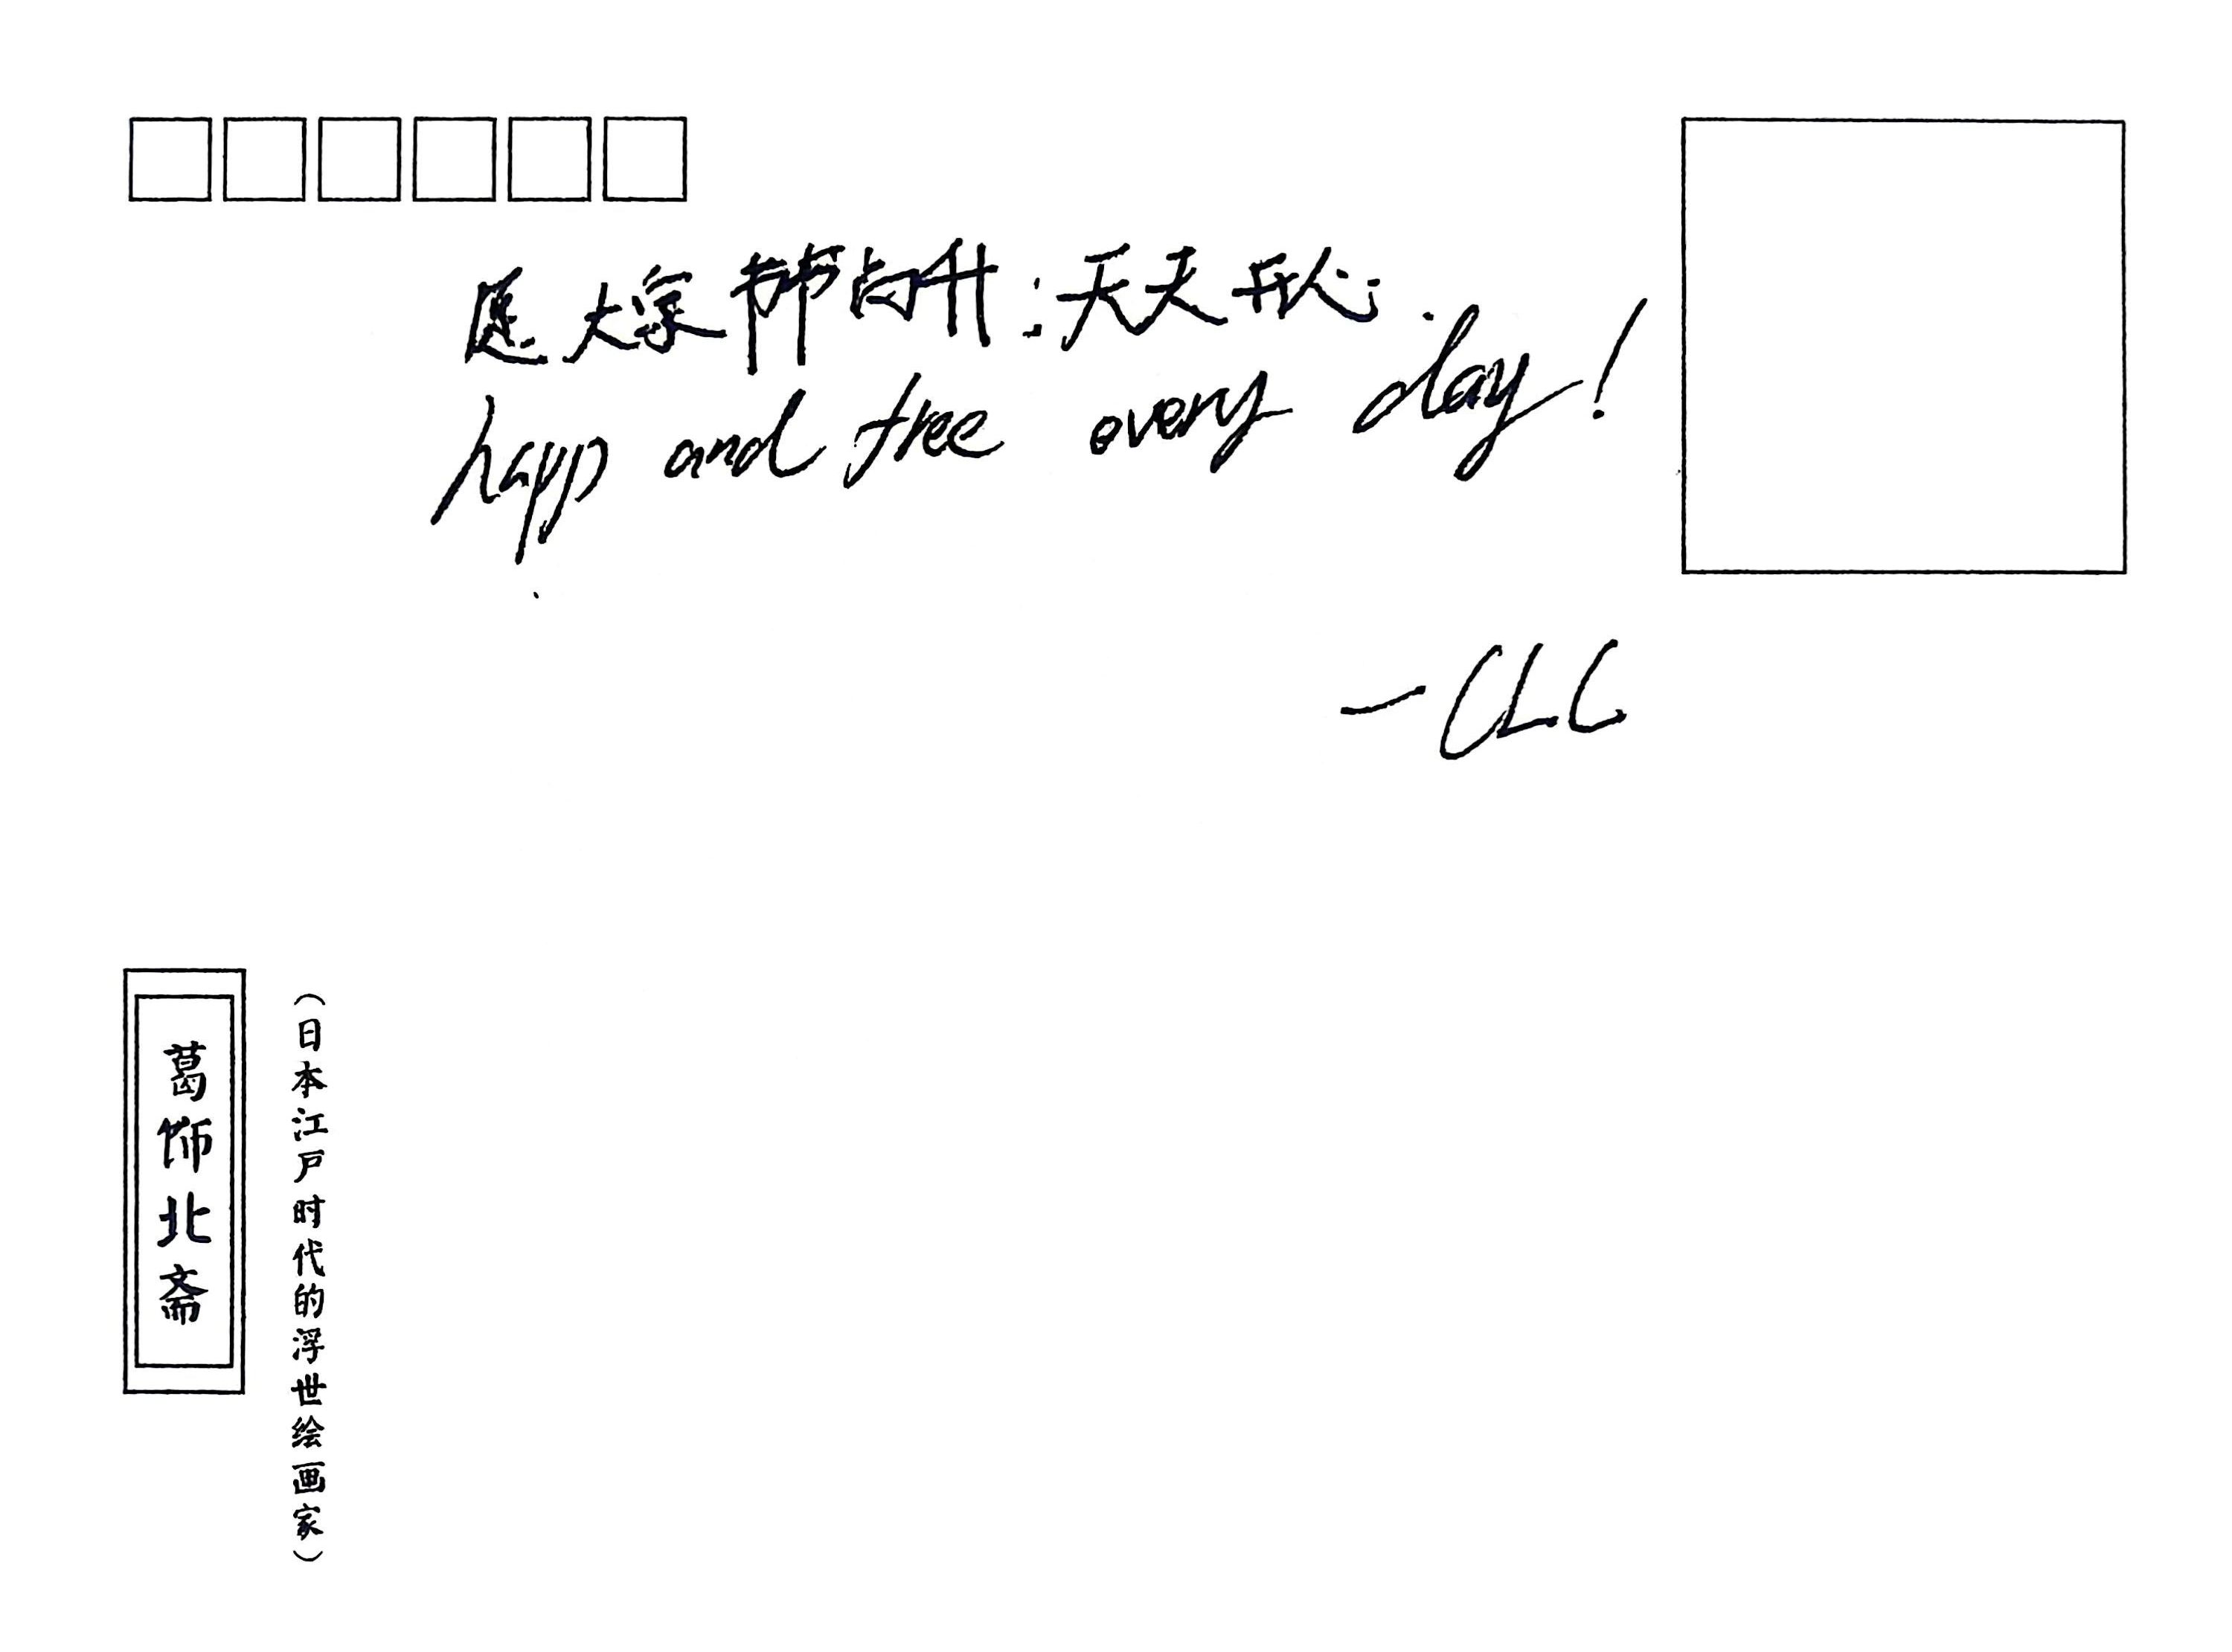 大家
天天开心.
and free every day!
—CLC
葛饰北斋
(日本江户时代的浮世绘画家)